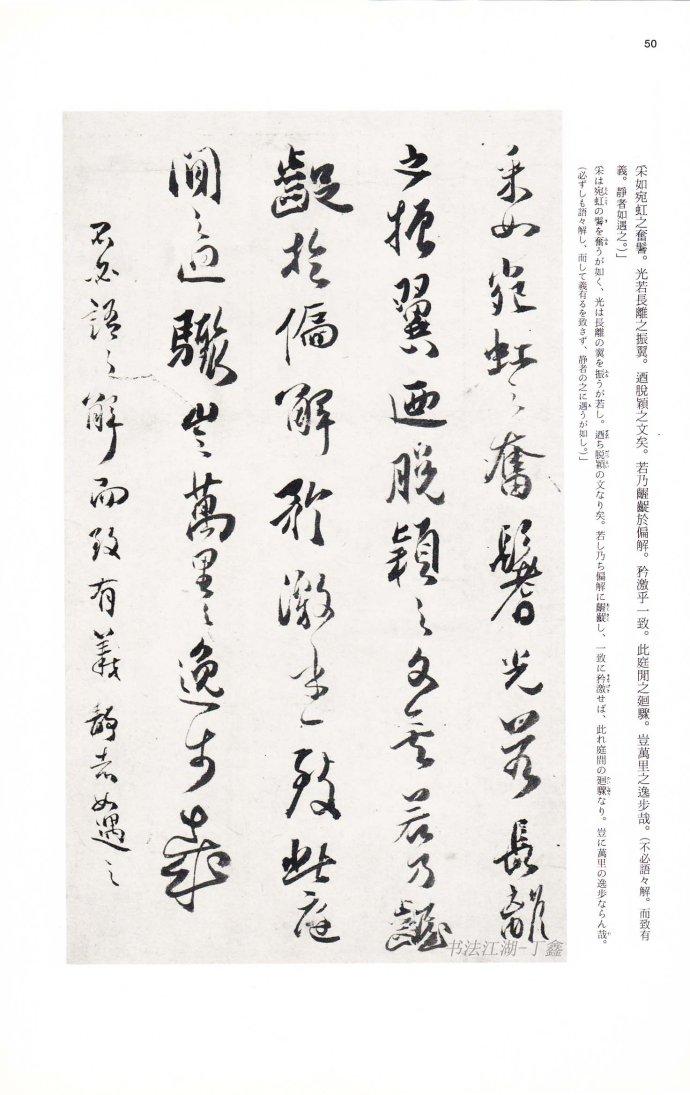 50
采如宛虹之奮鬐。光若長離之振翼。迺脫穎之文矣。若乃齷齪於偏解。矜激乎一致。此庭間之廻驟。豈萬里之逸步哉。(不必語々解。而致有
義。靜者如遇之。)」
采は宛虹の鬐を奮うが如く、光は長離の翼を振うが若し。迺ち脱穎の文なり矣。若し乃ち偏解に齷齪し、一致に矜激せば、此れ庭間の廻驟なり。豈に萬里の逸歩ならん哉。
(必ずしも語々解し、而して義有るを致さず、靜者の之に遇うが如し。)」
采如宛虹之奮鬐光若長離
之振翼迺脫穎之文矣若乃齷
齪於偏解矜激乎一致此庭
間之迴驟豈萬里之逸步哉
不必語之解而致有義靜者如遇之
书法江湖-丁鑫